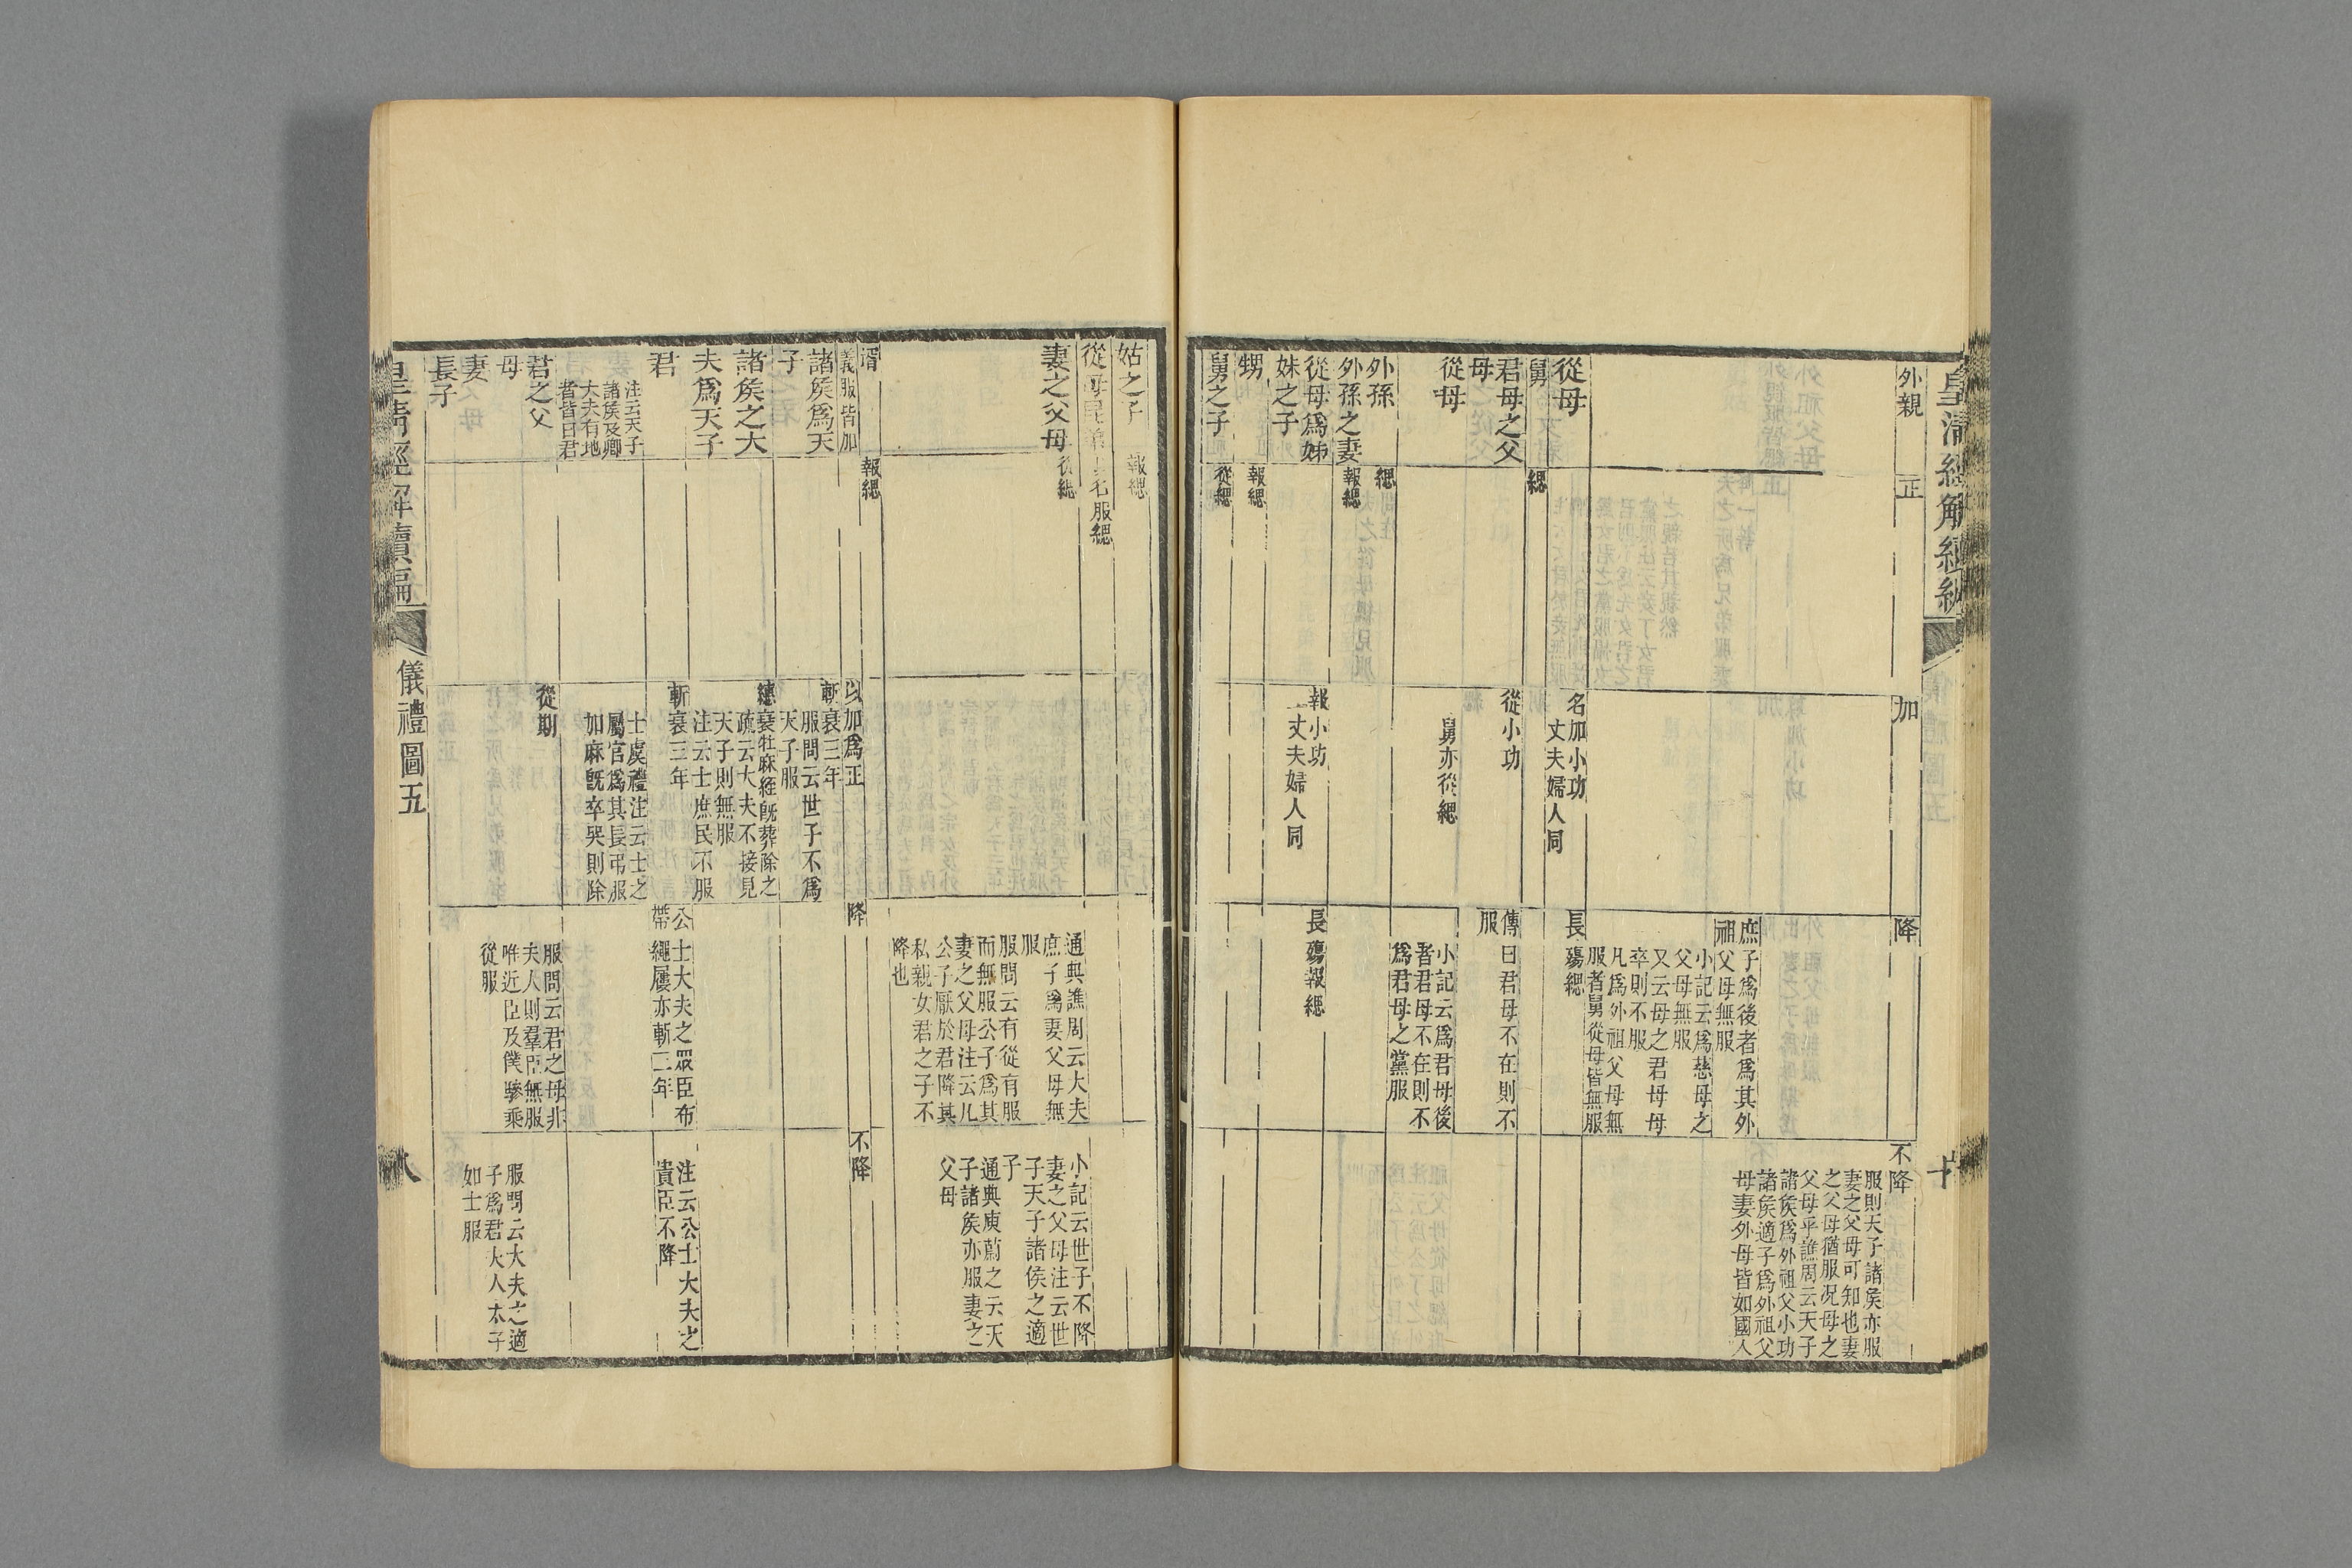 皇清經解續編
外親
正
加
降
不降
服則天子諸矦亦服
妻之父母可知也妻
之父母猶服况母之
父母乎譙周云天子
諸矦爲外祖父小功
諸矦適子爲外祖父
母妻外母皆如國人
庶子爲後者爲其外
祖父母無服
小記云爲慈母之
父母無服
又云母之君母母
卒則不服
凡爲外祖父母無
服者舅從母皆無服
從母
名加小功
丈夫婦人同
長殤緦
舅
緦
君母之父
母
從小功
傳曰君母不在則不
服
從母
舅亦從緦
小記云爲君母後
者君母不在則不
爲君母之黨服
外孫
緦
外孫之妻
報緦
從母爲姊
妹之子
報小功
丈夫婦人同
長殤報緦
甥
報緦
舅之子
從緦
姑之子
報緦
從母昆弟
以名服緦
妻之父母
從緦
通典譙周云大夫
庶子爲妻父母無
服
服問云有從有服
而無服公子爲其
妻之父母注云凡
公子厭於君降其
私親女君之子不
降也
小記云世子不降
妻之父母注云世
子天子諸侯之適
子
通典庾蔚之云天
子諸矦亦服妻之
父母
壻
報緦
義服皆加
以加爲正
降
不降
諸矦爲天
子
斬衰三年
服問云世子不爲
天子服
諸矦之大
夫爲天子
繐衰牡麻絰旣葬除之
疏云大夫不接見
天子則無服
注云士庶民不服
君
注云天子
諸矦及卿
大夫有地
者皆曰君
斬衰三年
士虞禮注云士之
屬官爲其長弔服
加麻旣卒哭則除
公士大夫之眾臣布
帶繩屨亦斬三年
注云公士大夫之
貴臣不降
君之父
母
妻
長子
從期
服問云君之母非
夫人則羣臣無服
唯近臣及僕驂乘
從服
服問云大夫之適
子爲君夫人太子
如士服
皇清經解續編
儀禮圖五